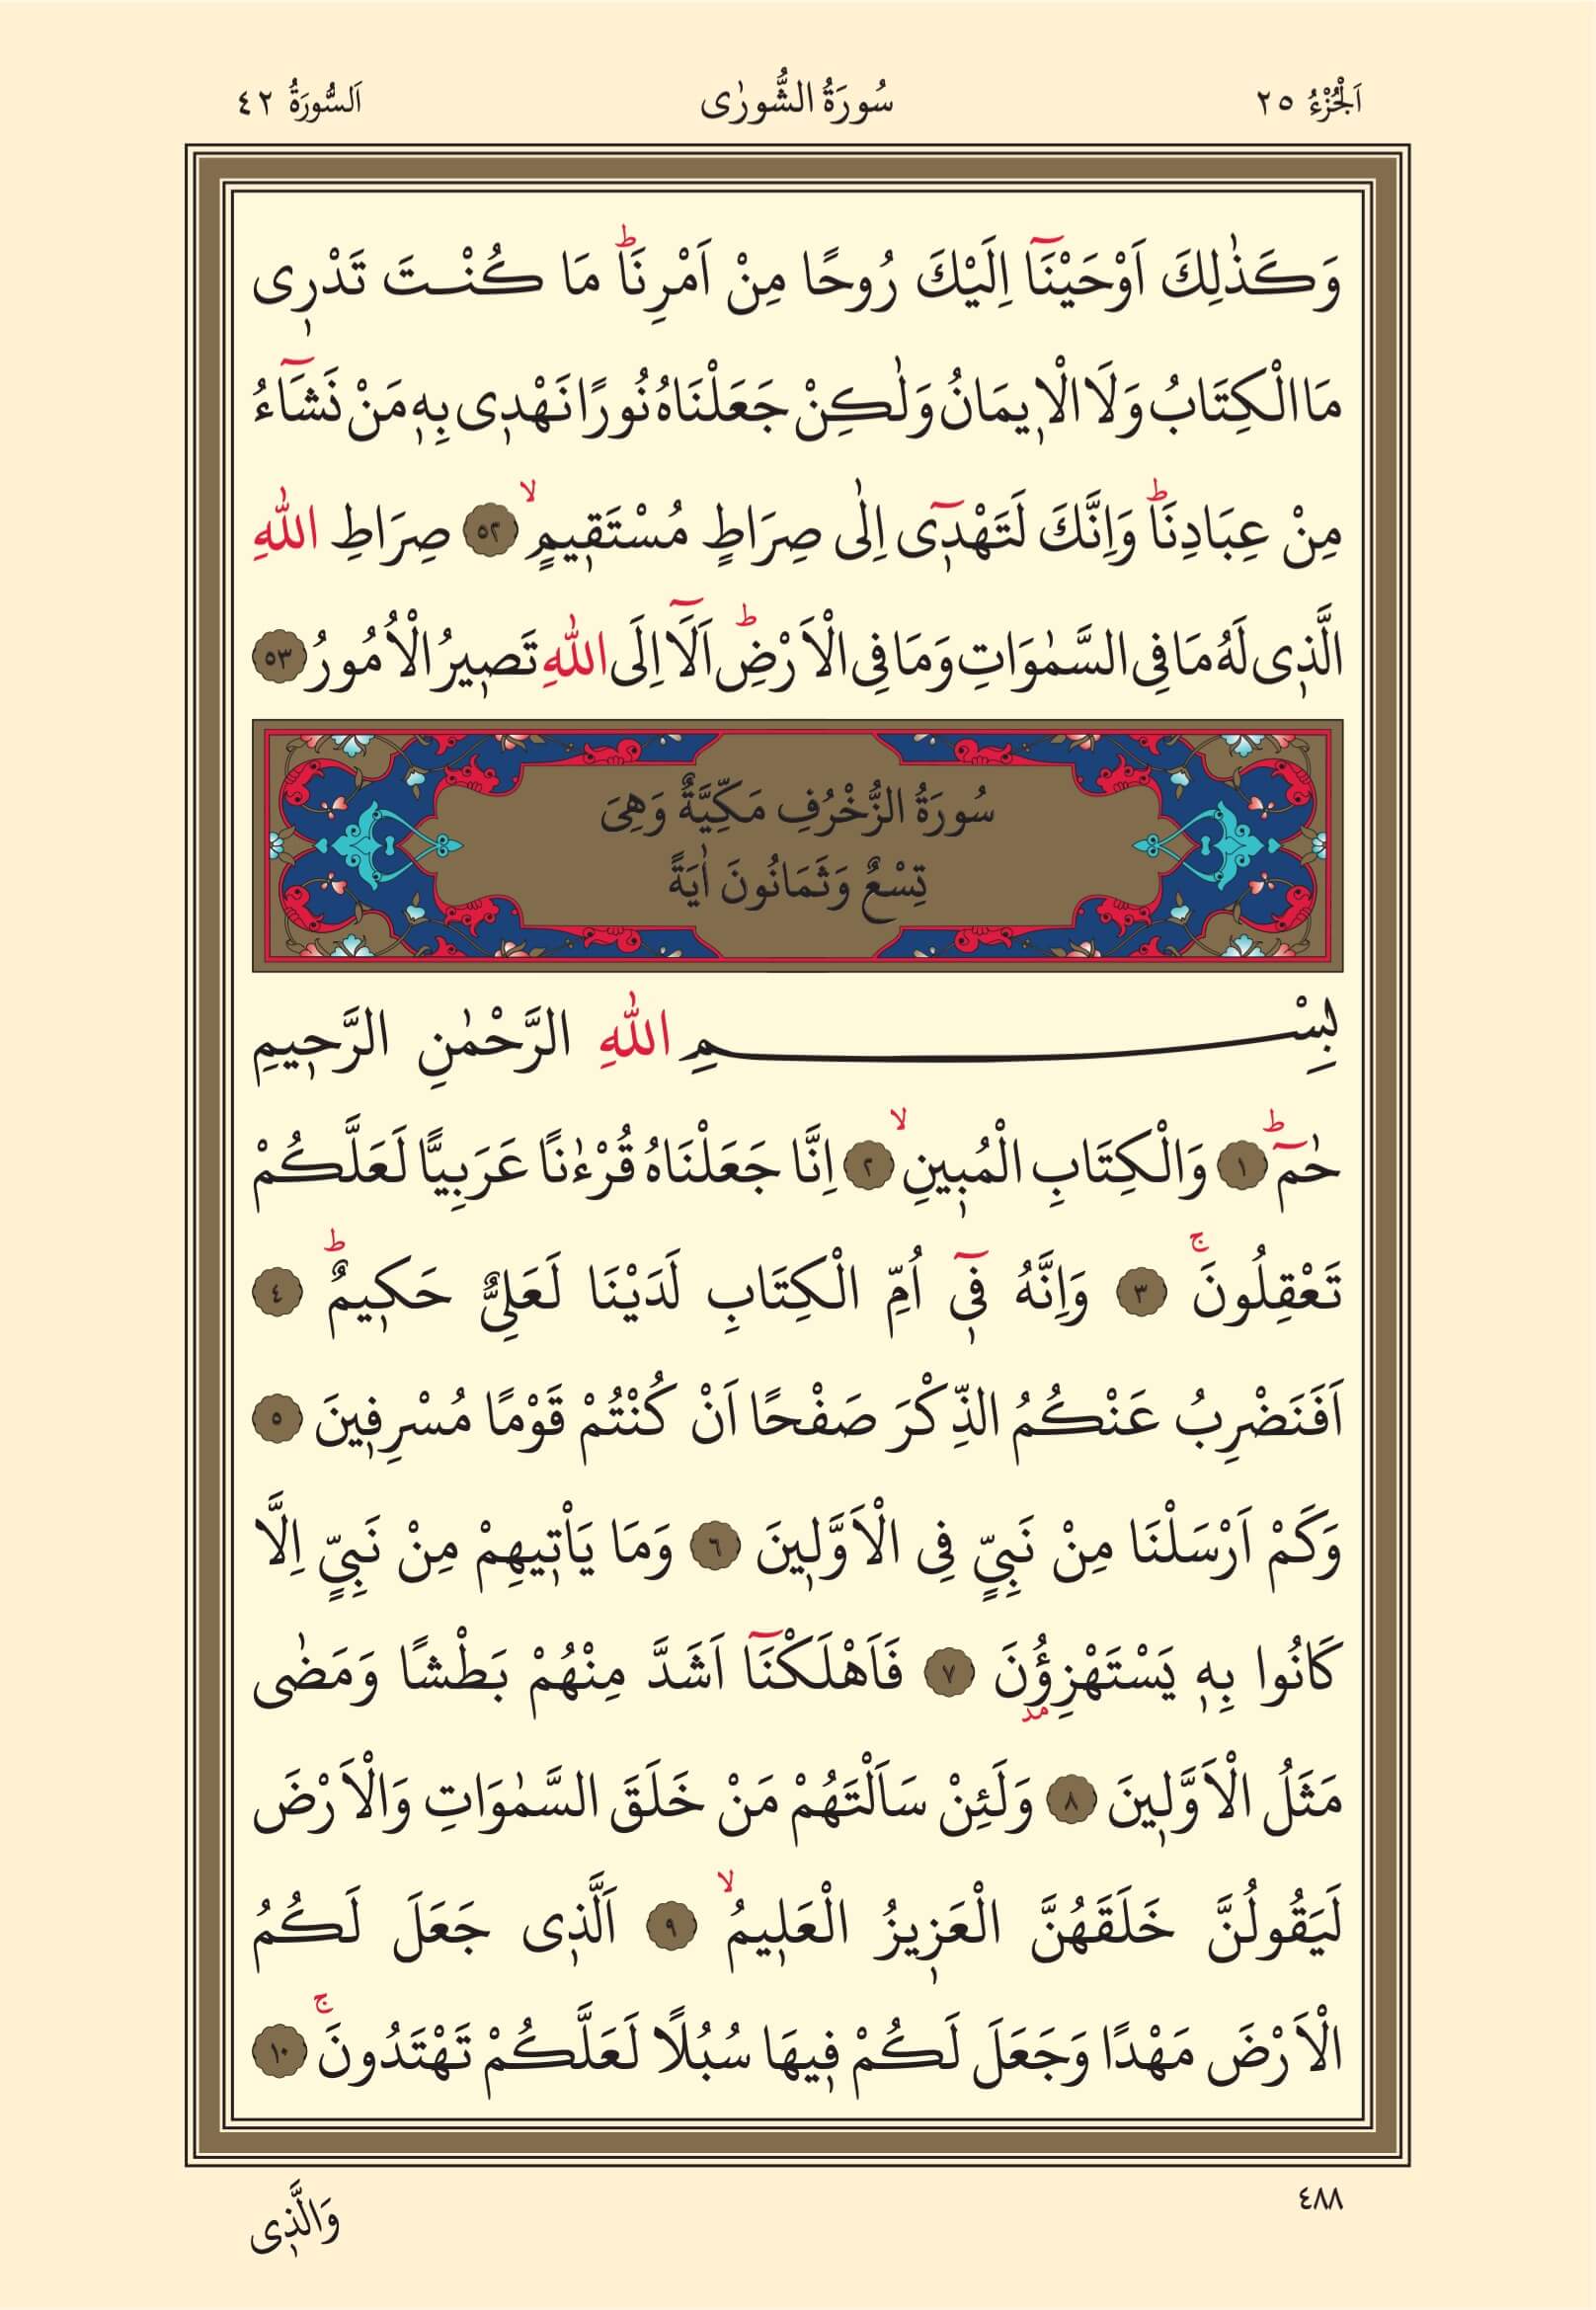 اَلْجُزْءُ ٢٥
سُورَةُ الشُّورٰى
اَلسُّورَةُ ٤٢
وَكَذٰلِكَ اَوْحَيْنَٓا اِلَيْكَ رُوحًا مِنْ اَمْرِنَاۜ مَا كُنْتَ تَدْرٖى
مَا الْكِتَابُ وَلَا الْاٖيمَانُ وَلٰكِنْ جَعَلْنَاهُ نُورًا نَهْدٖى بِهٖ مَنْ نَشَٓاءُ
مِنْ عِبَادِنَاۜ وَاِنَّكَ لَتَهْدٖٓى اِلٰى صِرَاطٍ مُسْتَقٖيمٍۙ ٥٢ صِرَاطِ اللّٰهِ
الَّذٖى لَهُ مَا فِى السَّمٰوَاتِ وَمَا فِى الْاَرْضِۜ اَلَٓا اِلَى اللّٰهِ تَصٖيرُ الْاُمُورُ ٥٣
سُورَةُ الزُّخْرُفِ مَكِّيَّةٌ وَهِىَ
تِسْعٌ وَثَمَانُونَ اٰيَةً
بِسْمِ اللّٰهِ الرَّحْمٰنِ الرَّحٖيمِ
حٰمٓۜ ١ وَالْكِتَابِ الْمُبٖينِۙ ٢ اِنَّا جَعَلْنَاهُ قُرْءٰنًا عَرَبِيًّا لَعَلَّكُمْ
تَعْقِلُونَۚ ٣ وَاِنَّهُ فٖٓى اُمِّ الْكِتَابِ لَدَيْنَا لَعَلِىٌّ حَكٖيمٌۜ ٤
اَفَنَضْرِبُ عَنْكُمُ الذِّكْرَ صَفْحًا اَنْ كُنْتُمْ قَوْمًا مُسْرِفٖينَ ٥
وَكَمْ اَرْسَلْنَا مِنْ نَبِىٍّ فِى الْاَوَّلٖينَ ٦ وَمَا يَاْتٖيهِمْ مِنْ نَبِىٍّ اِلَّا
كَانُوا بِهٖ يَسْتَهْزِؤُ۫نَ ٧ فَاَهْلَكْنَٓا اَشَدَّ مِنْهُمْ بَطْشًا وَمَضٰى
مَثَلُ الْاَوَّلٖينَ ٨ وَلَئِنْ سَاَلْتَهُمْ مَنْ خَلَقَ السَّمٰوَاتِ وَالْاَرْضَ
لَيَقُولُنَّ خَلَقَهُنَّ الْعَزٖيزُ الْعَلٖيمُۙ ٩ اَلَّذٖى جَعَلَ لَكُمُ
الْاَرْضَ مَهْدًا وَجَعَلَ لَكُمْ فٖيهَا سُبُلًا لَعَلَّكُمْ تَهْتَدُونَۚ ١٠
٤٨٨
وَالَّذٖى